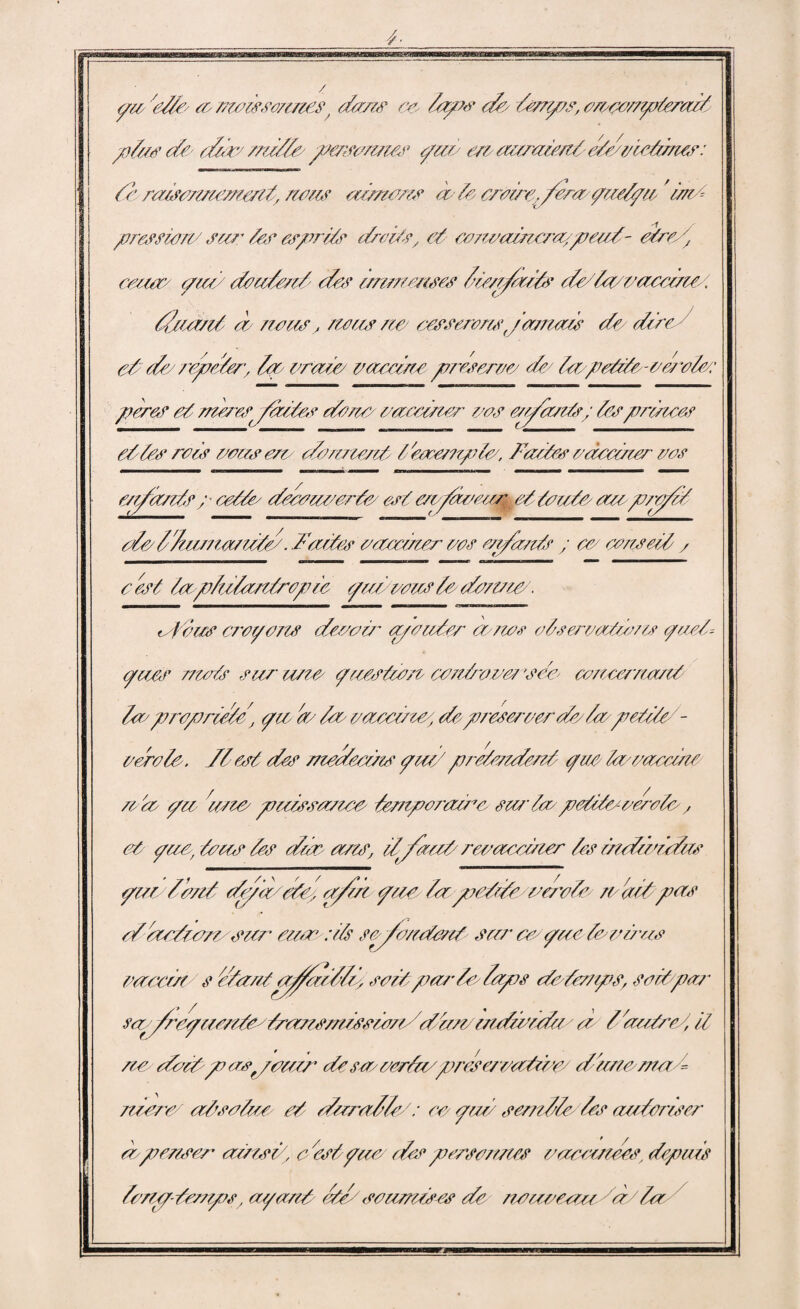 4.
qu'elle a moissonnés, dans ce laps de temps, on compterait
plus de dix mille personnes qui en auraient été victimes:
Ce raisonnement, nous aimons à le croire, fera quelqu'im-
pression sur les esprits droits, et convaincra, peut-être,
ceux qui doutent des immenses bienfaits de la vaccine.
Quant à nous, nous ne cesserons jamais de dire
et de répéter, la vraie vaccine préserve de la petite-vérole:
pères et mères faites donc vacciner vos enfants; les princes
et les rois vous en donnent l'exemple. Faites vacciner vos
enfants; cette découverte est en faveur et toute au profit
de l'humanité. Faites vacciner vos enfants; ce conseil,
c'est la philantropie qui vous le donne.
Nous croyons devoir ajouter à nos observations quel-
ques mots sur une question controversée concernant
la propriété, qu'a la vaccine, de préserver de la petite-
vérole. Il est des médecins qui prétendent que la vaccine
n'a qu'une puissance temporaire sur la petite-vérole,
et que, tous les dix ans, il faut revacciner les individus
qui l'ont déjà été, afin que la petite vérole n'ait pas
d'action sur eux: ils se fondent sur ce que le virus
vaccin s'étant affaibli, soit par le laps de temps, soit par
sa fréquente transmission d'un individu à l'autre, il
ne doit pas jouir de sa vertu préservative d'une ma-
nière absolue et durable: ce qui semble les autoriser
à penser ainsi, c'est que des personnes vaccinées, depuis
long-temps, ayant été soumises de nouveau à la